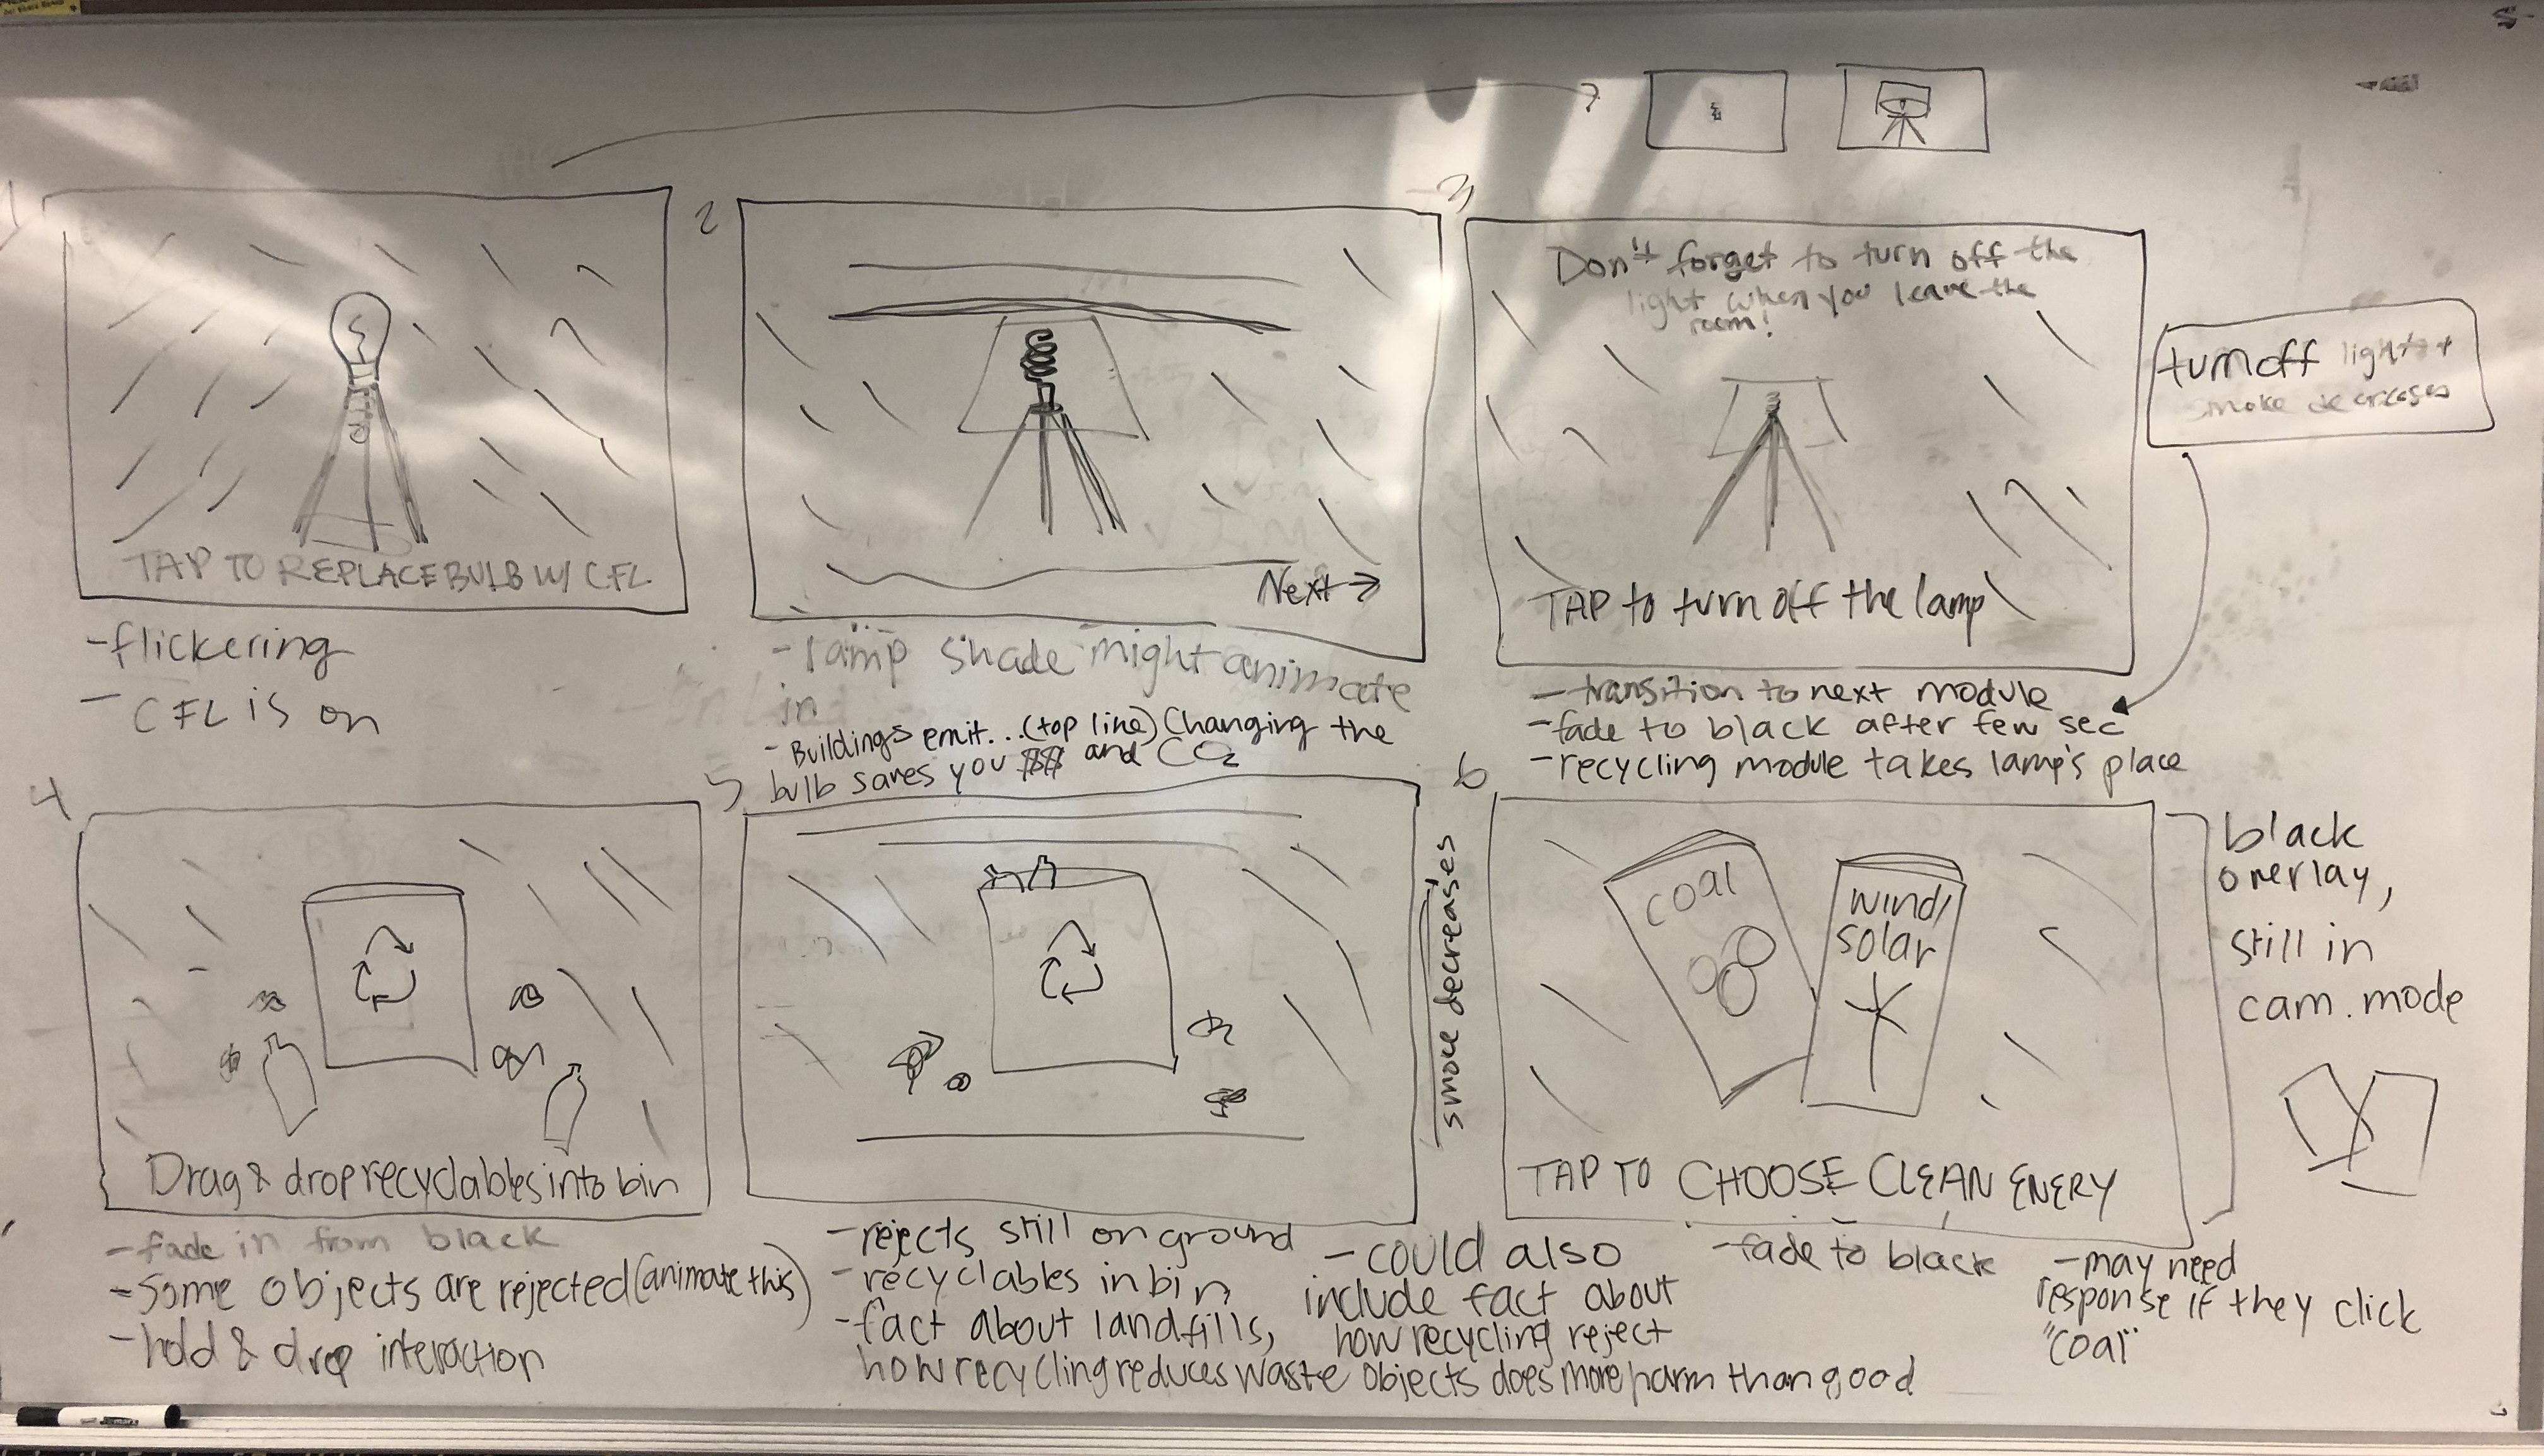 1
TAP TO REPLACE BULB W/ CFL
- flickering
- CFL is on
2
Next →
- lamp shade might animate
in
- Buildings emit... (top line) Changing the
bulb saves you $$$ and CO2
3
Don't forget to turn off the
light when you leave the
room!
TAP to turn off the lamp
turn off light +
smoke decreases
- transition to next module
- fade to black after few sec
- recycling module takes lamp's place
4
Drag & drop recyclables into bin
- fade in from black
- some objects are rejected (animate this)
- hold & drop interaction
5
- rejects still on ground
- recyclables in bin
- fact about landfills,
how recycling reduces waste
- could also
include fact about
how recycling reject
objects does more harm than good
smoke decreases
6
coal
wind/
solar
TAP TO CHOOSE CLEAN ENERY
- fade to black
- may need
response if they click
"coal"
black
overlay,
still in
cam. mode